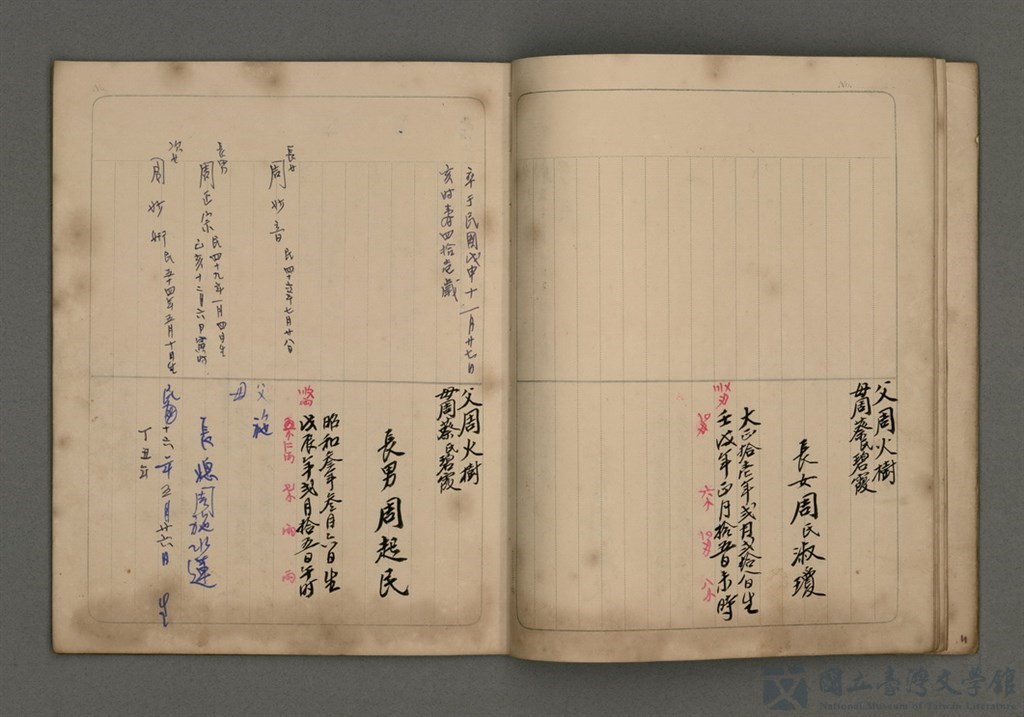 父周火樹
母周蔡氏碧霞
長女周氏淑瓊
大正拾壱年弐月弐拾八日生
壬戌年正月拾五日未時
六
八
父周火樹
母周蔡氏碧霞
長男周起民
昭和叁年叁月六日生
戊辰年弐月拾五日午時
父 施
母
長媳周施水蓮
民國十六年五月廿六日 生
丁丑年
卒于民國戊申十一月廿七日
亥時壽四拾壱歲
長女
周妙音 民四十六年七月廿八日
長男
周正宗 民四十九年一月四日生
己亥十二月六日寅時
次女
周妙妍 民五十四年五月十日生
國立臺灣文學館
National Museum of Taiwan Literature